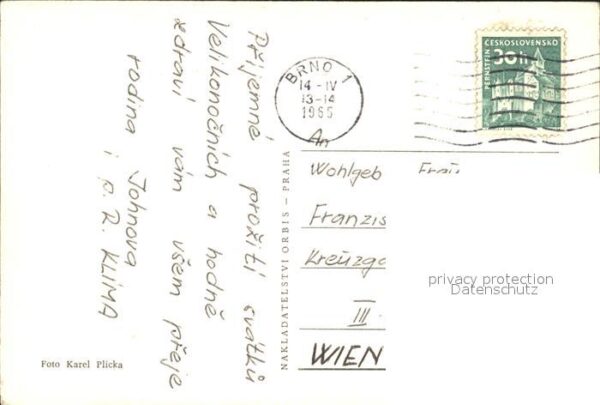 Příjemné prožití svátků
Velikonočních a hodně
zdraví vám všem přeje
rodina Johnova
i p. R. KLIMA
Foto Karel Plicka
NAKLADATELSTVÍ ORBIS — PRAHA
BRNO 1
14 -IV
13-14
1965
ČESKOSLOVENSKO
30h
PERNŠTEJN
An
Wohlgeb Frau
Franzis
Kreuzga
III.
WIEN
privacy protection
Datenschutz